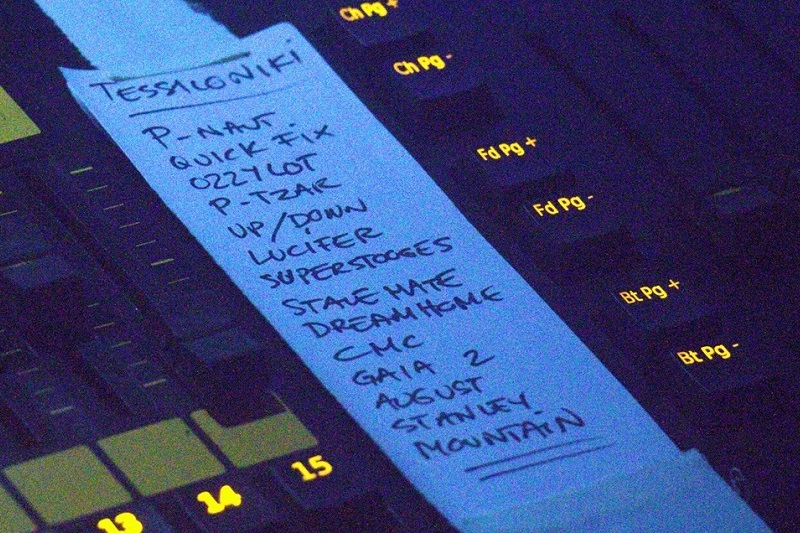 TESSILONIKI
P-NAUT.
QUICK FIX
OZZYLOT
P-TZAR
UP/DOWN
LUCIFER
SUPERSTOOGES
STALE MATE
DREAMHOME
CMC
GAIA 2
AUGUST
STANLEY
MOUNTAIN
Ch Pg +
Ch Pg -
Fd Pg +
Fd Pg -
Bt Pg +
Bt Pg -
13
14
15